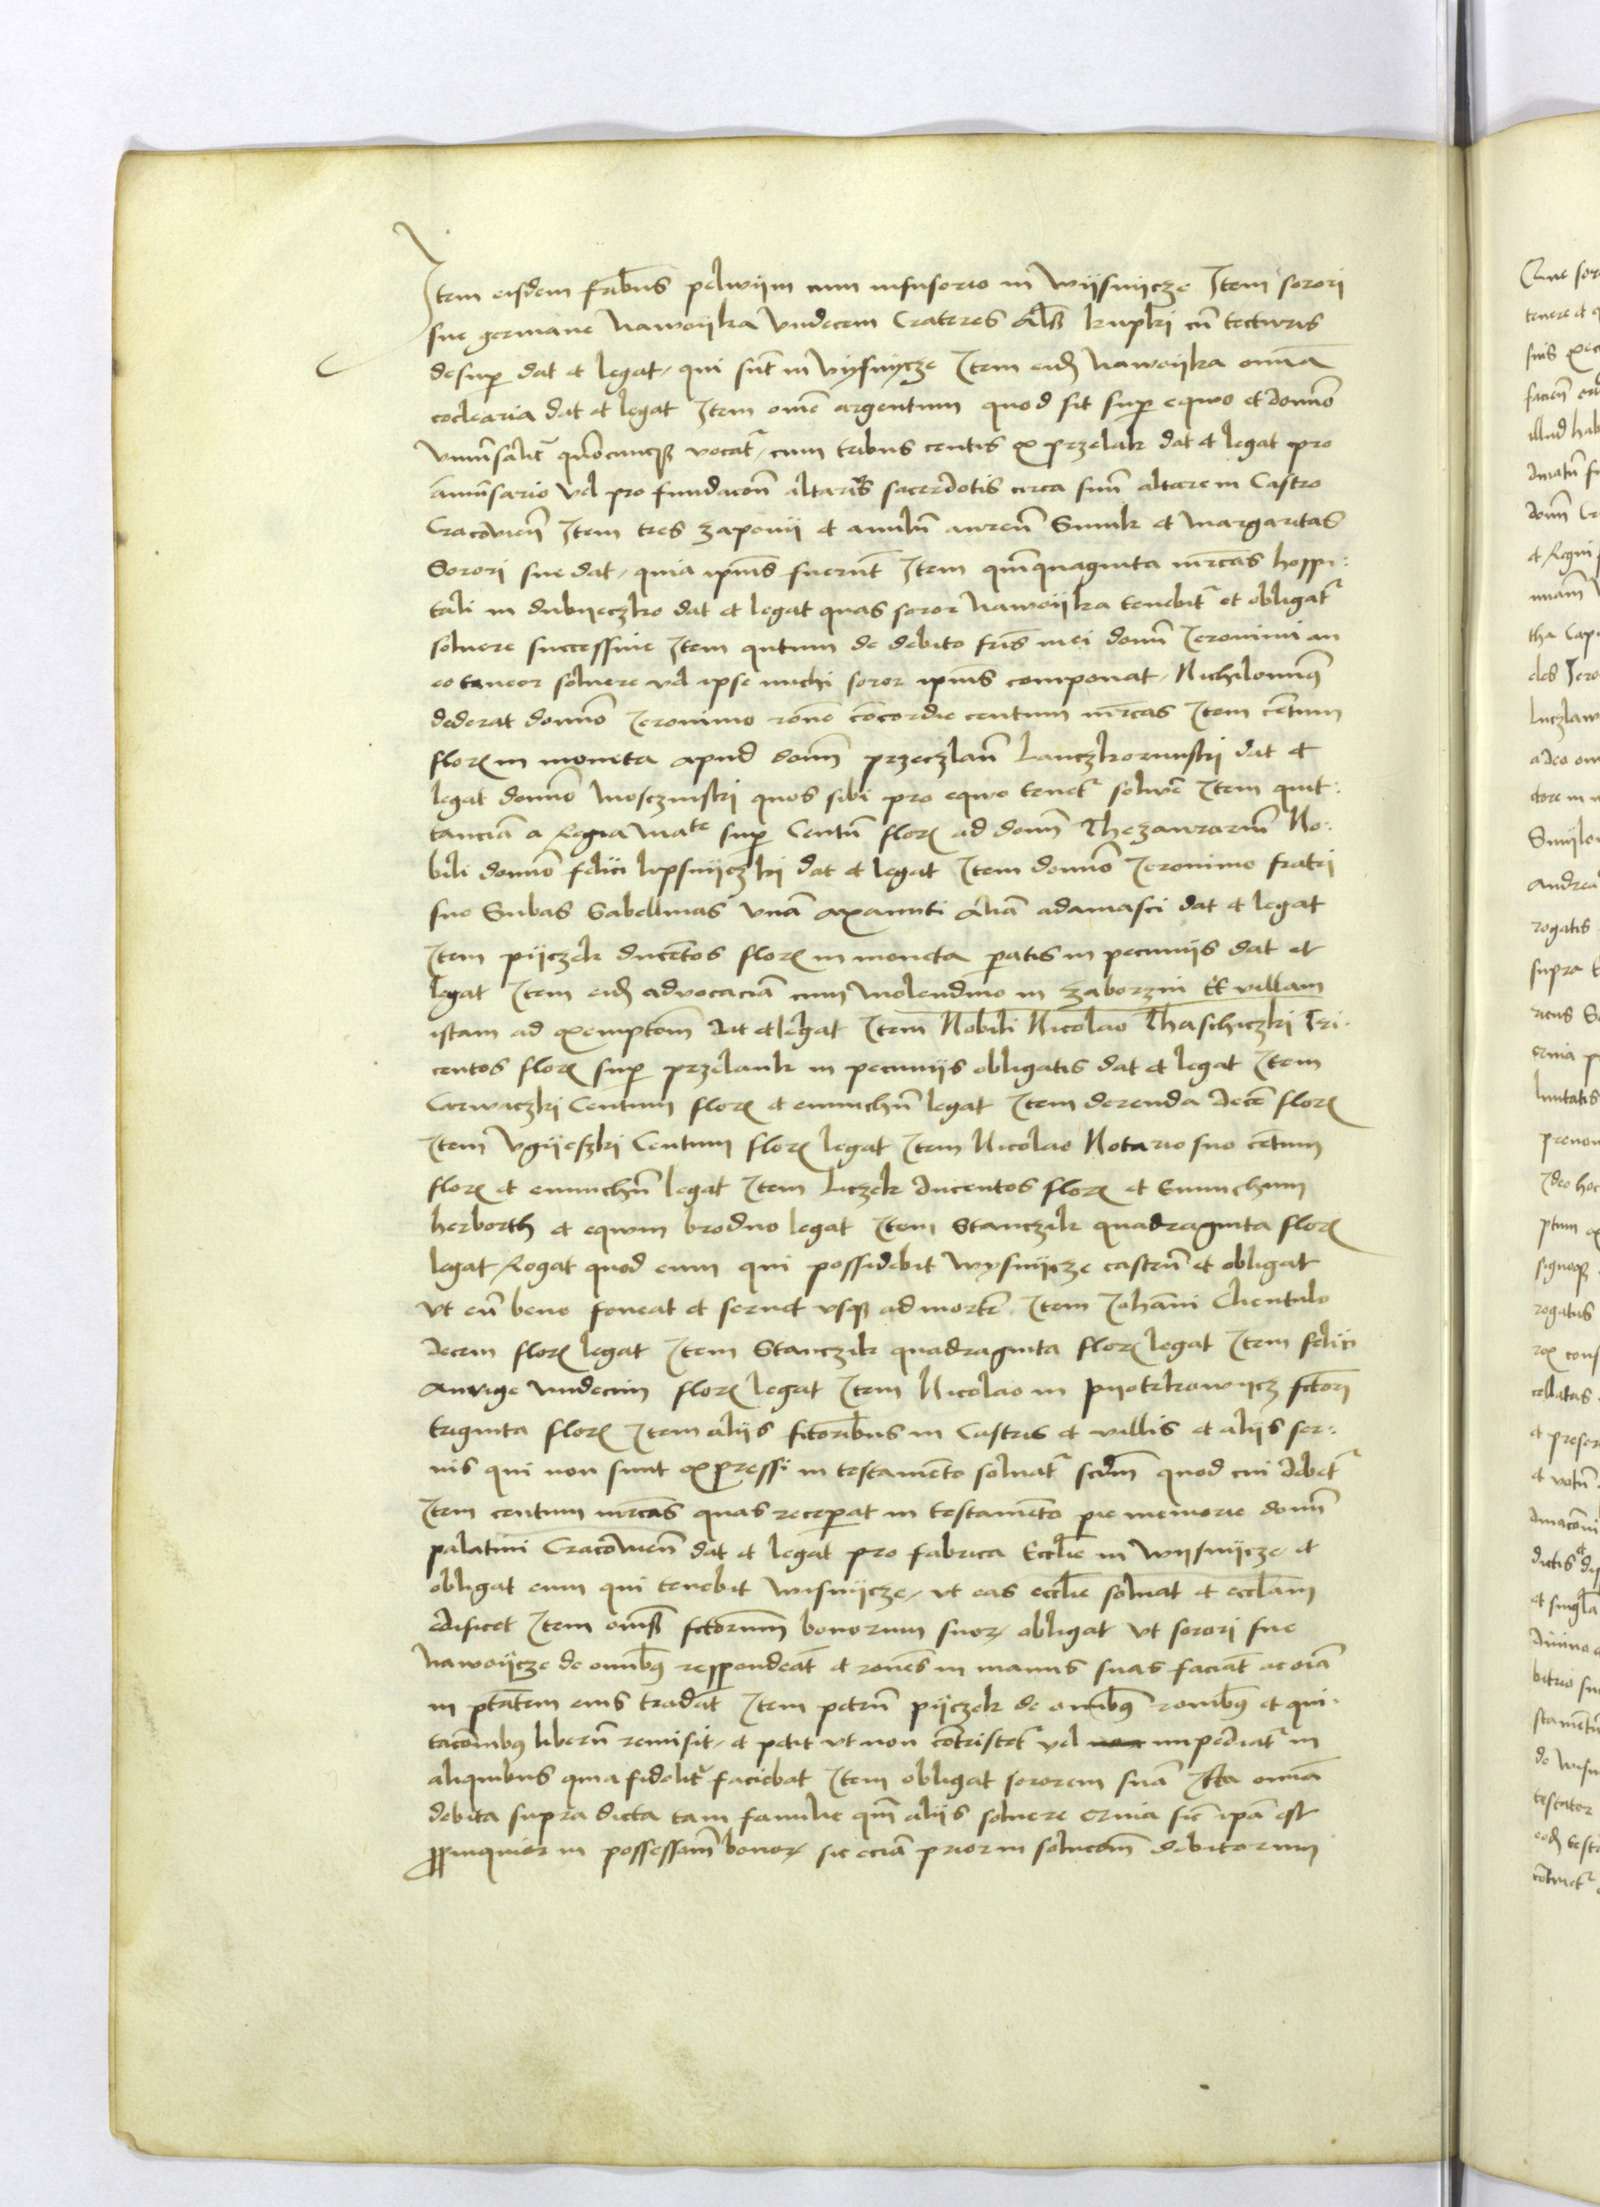 Item eisdem fratribus pelwiim cum infusorio in Wijsnijcze Item sorori
sue germane Nawoijka Vndecem Crateres als kupki cu tecturis
desup dat et legat, qui sut in Vysnycze Item eide Nawoijka omia
coclearia dat et legat Item ome argentum quod sit sup eqwo et domo
vocat, cum tribus centis ex przelak dat et legat pro
anniuersario Vel pro fundacoe altaris sacerdotis circa suu altare in Castro
Cracouien Item tres zaponij et anulu aureu Smuk et Margaritas
Sorori sue dat, quia ipius fuerut Item quinquaginta mrcas hospi:
tali in dubijeczko dat et legat quas soror Nawoijka tenebit et obligat
soluere successiue Item qutum de debito fris mei domi Ieronimi an
eo teneor soluere vel ipse michi soror ipius componat, Nichilomin9
dederat domo Ieronimo rone concordie centum mrcas Item centum
flor in moneta apud dom przeczlau Lanczkorunski dat et
legat domo Mosczinski quos sibi pro eqwo tenet solue Item quit:
tancia a Regia Mate sup Centu flor ad dom Thezaurariu No:
bili domo felici lypsnijczki dat et legat Item domo Ieronimo fratri
suo Subas Sabellinas Vna axamiti Alia adamasci dat et legat
Item pijczek ducetos flor in moneta patis in pecunijs dat et
legat Item eide advocacia cum Molendino in Zaborzin Et villam
istam ad exemptoem dat et legat Item Nobili Nicolao Thaschiczki Tri:
centos flor sup przelank in pecunijs obligatis dat et legat Item
Crwaczki Centum flor et enuichu legat Item derenda dece flor
Item Vgijeszki Centum flor legat Item Nicolao Notario suo cetum
flor et enuichu legat Item Liczek ducentos flor et Enuichum
herborth et eqwm brodno legat Item Stanczik quadraginta flor
legat, Rogat quod eum qui possidebit Wysnijcze castru et obligat
Vt eu bene foueat et seruet vsq ad morte, Item Iohani Clientulo
decem flor legat Item Stanczik quadraginta flor legat Item felici
Aurige vndecim flor legat Item Nicolao in pijotrkowijcz fctori
triginta flor Item alijs fctoribus in Castris et villis et alijs ser:
uis qui non sunt expressi in testameto soluat scdm quod cui debet
Item centum mrcas quas receperat in testameto pie memorie domi
palatini Cracouien dat et legat pro fabrica Ecclie in Wijsnijcze et
obligat eum qui tenebit Wisnijcze, vt eas ecclie soluat et eccliam
edificet Item omes fctorum bonorum suor obligat vt sorori sue
Nawoijcze de omib9 respondeat et rones in manus suas faciat ac oia
in ptatem eius tradat Item petru pijczek de omib9 ronib9 et qui:
tacoib9 liberu remisit, et petit vt non contristet vel impediat in
aliquibus quia fidelit faciebat Item obligat sororem sua Ita omia
debita supra dicta tam familie qm alijs soluere Cuia sic ipa est
propinquior in possessioem bonor sic ecia prior in solucoem debitorum